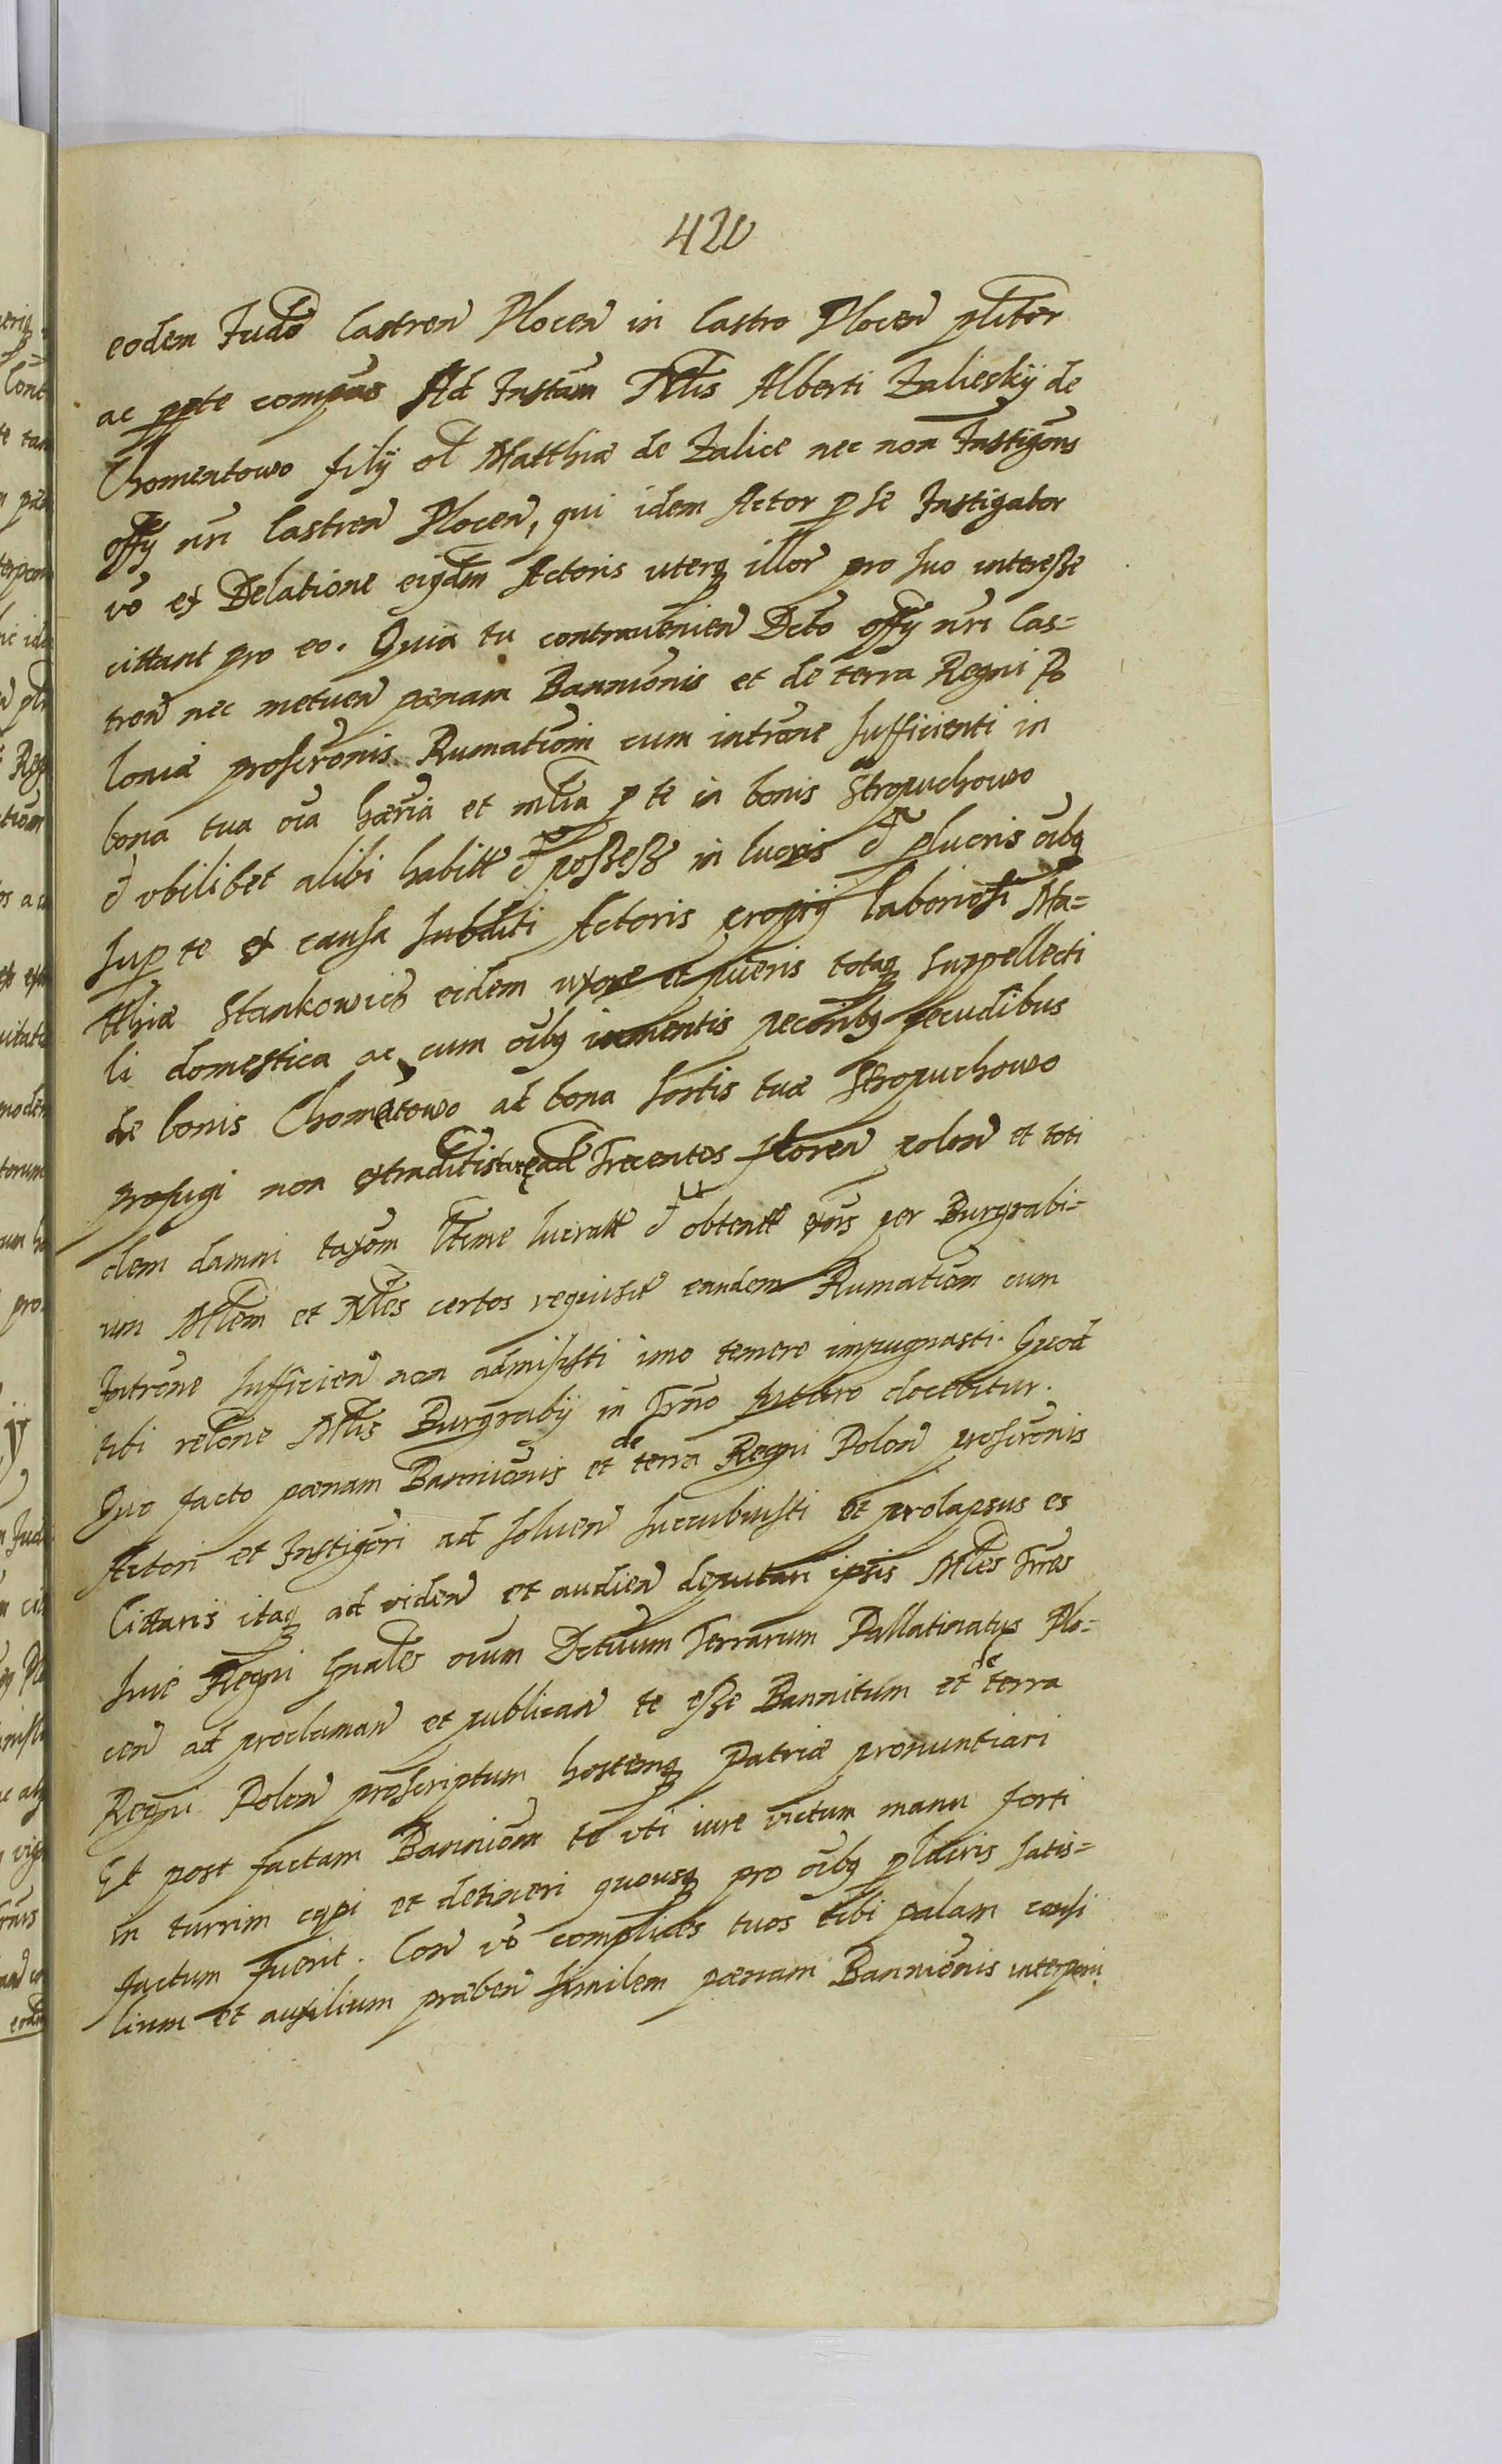 420
eodem Judō CastreñPloceñ in Castro Ploceñ pliter
ac ppte compeas Ad Instam Nlis Alberti Zalieskÿ de
Chomentowo filÿ ol Matthiæ de Zalice nec non Instigōris
offÿ nri Castreñ Ploceñ, qui idem Actor p se Instigator
vō ex Delatione eiusdem Actoris uterq illor pro suo interesse
cittant pro eo. Quia tu contrauenieñ Dcto offÿ nri Cas=
treñ nec metueñ pœnam Bannionis et de terra Regni Po
loniæ proscronis Rumationi cum introne sufficienti in
bona tua oīa hæria et mlia p te in bonis Stropuchowo
et ubilibet alibi habitt et possess in lucris et plucris oībq
sup te ex causa subditi Actoris proprÿ laboriosi Ma=
tthiæ Stankowicz eidem uxore et pueris totaq suppellecti
li domestica ac cum oībq iumentis pecoribq pecudibus
de bonis Chometowo ad bona sortis tuæ Stropuchowo
profugi non extraditis ad Trecentos floreñ poloñ et toti
dem damni taxom ltime lucratt et obtentt exōis per Burgrabi=
um Nlem et Nles certos requisit eandem Rumationem cum
Introne sufficieñ non admisisti imo temere impugnasti. Quod
tibi relone Nlis Burgrabÿ in Trno futuro docebitur.
Quo facto pœnam Bannionis et de terra Regni Poloñ proscronis
Actori et Instigōri ad solueñ succubuisti et prolapsus es
Cittaris itaq ad videñ et audieñ deputari ipsis Mles Trres
siue Regni Gnales oium Dctuum Terrarum Pallatinatus Plo=
ceñ ad proclamañ et publicañ te esse Bannitum et de terra
Regni Poloñ proscriptum hostemq Patriæ pronuntiari
Et post factam Bannionem te uti iure victum manu forti
in turrim capi et detineri quousq pro oībq plucris satis=
factum fuerit. Coñ vō complices tuos tibi palam consi
lium et auxilium præbeñ similem pœnam Bannionis interponi